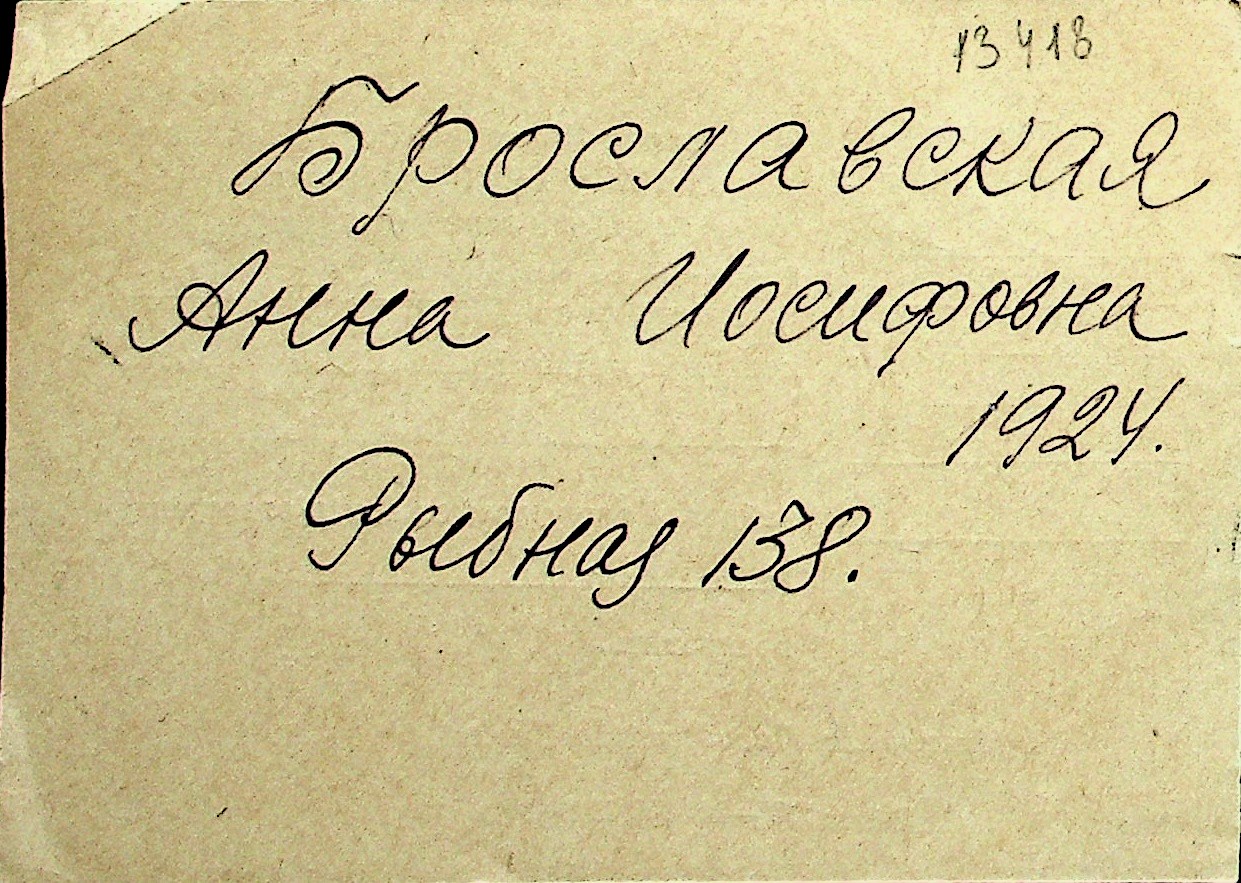 13418
Брославская
Анна Иосифовна
1924.
Рыбная 138.